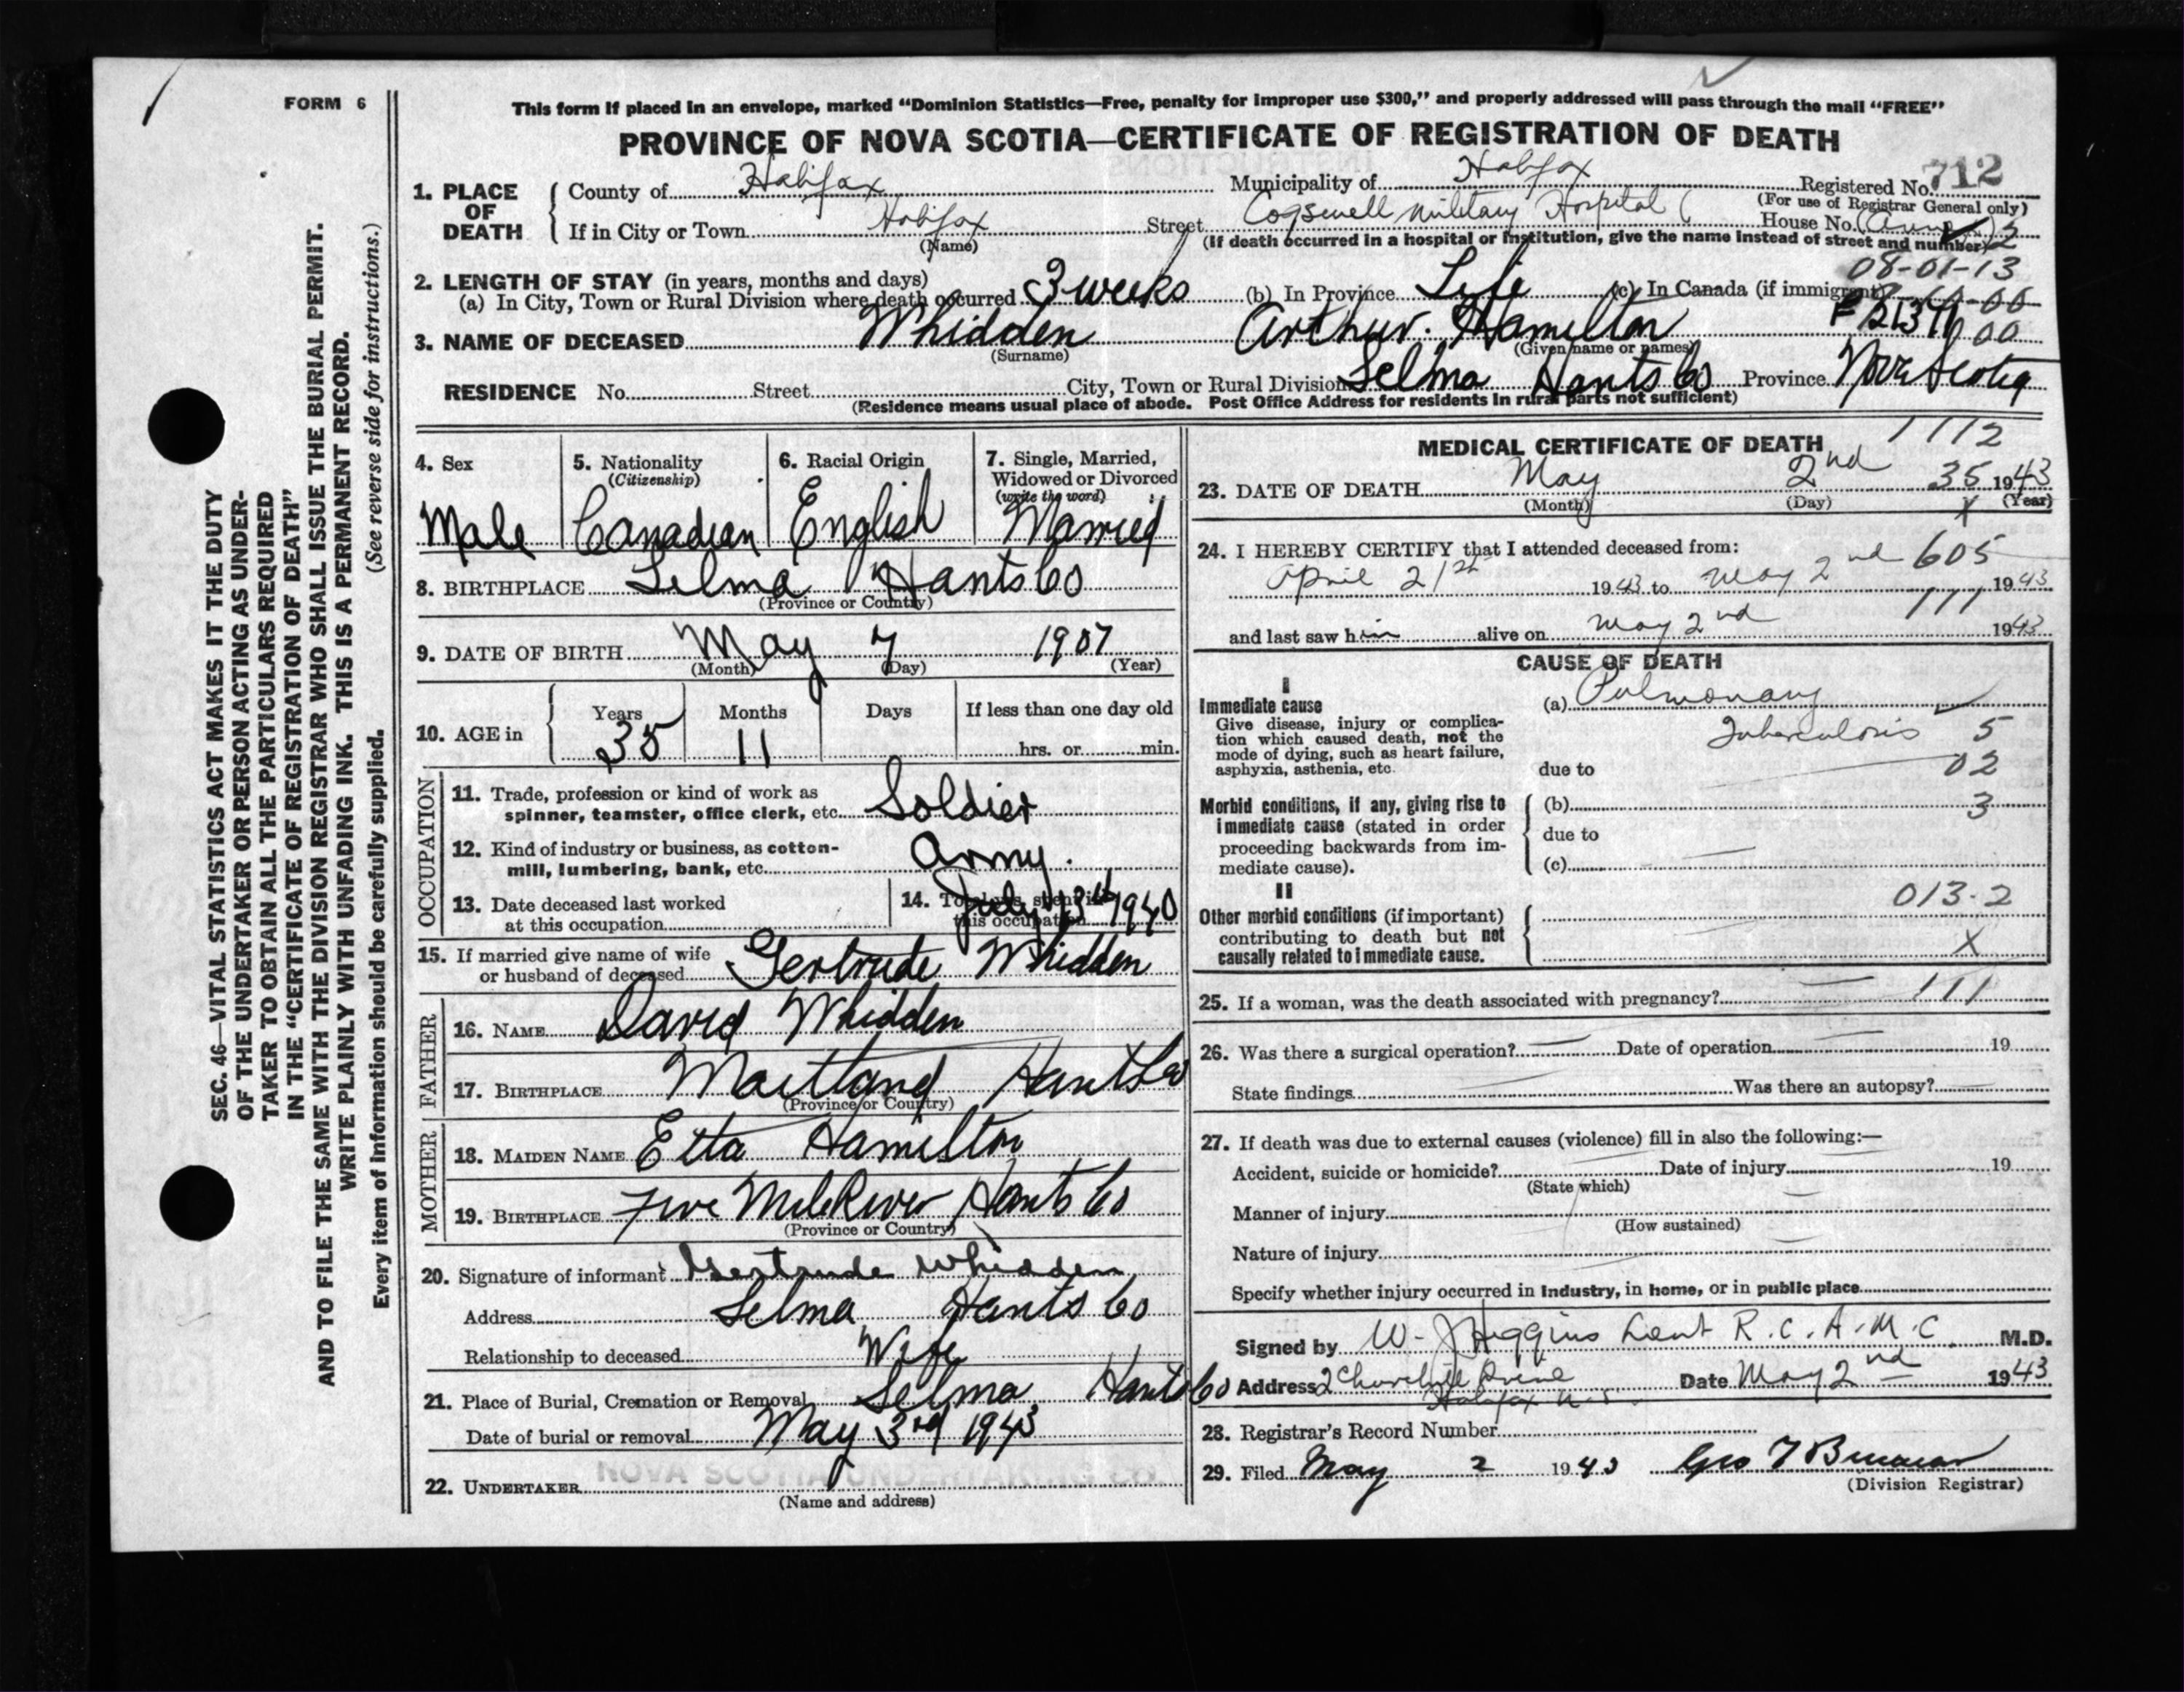 FORM 6
This form if placed in an envelope, marked “Dominion Statistics—Free, penalty for improper use $300,” and properly addressed will pass through the mail “FREE”
PROVINCE OF NOVA SCOTIA—CERTIFICATE OF REGISTRATION OF DEATH
1. PLACE OF DEATH
County of Halifax Municipality of Halifax Registered No. 712
(For use of Registrar General only)
If in City or Town Halifax Street Cogswell Military Hospital House No.
(Name) (If death occurred in a hospital or institution, give the name instead of street and number) 2
08-01-13
2. LENGTH OF STAY (in years, months and days)
(a) In City, Town or Rural Division where death occurred 3 weeks (b) In Province Life (c) In Canada (if immigrant)
3. NAME OF DECEASED Whidden Arthur. Hamilton
(Surname) (Given name or names)
RESIDENCE No. Street City, Town or Rural Division Selma Hants Co Province Nova Scotia
(Residence means usual place of abode. Post Office Address for residents in rural parts not sufficient)
4. Sex
Male
5. Nationality
(Citizenship)
Canadian
6. Racial Origin
English
7. Single, Married,
Widowed or Divorced
(write the word)
Married
8. BIRTHPLACE Selma Hants Co
(Province or Country)
9. DATE OF BIRTH May 7 1907
(Month) (Day) (Year)
10. AGE in
Years Months Days If less than one day old
35 11 hrs. or min.
OCCUPATION
11. Trade, profession or kind of work as
spinner, teamster, office clerk, etc. Soldier
12. Kind of industry or business, as cotton-
mill, lumbering, bank, etc. Army.
13. Date deceased last worked
at this occupation
14. Total yrs. spent in
this occupation July 13th 1940
15. If married give name of wife
or husband of deceased Gertrude Whidden
FATHER
16. NAME David Whidden
17. BIRTHPLACE Maitland Hants Co
(Province or Country)
MOTHER
18. MAIDEN NAME Etta Hamilton
19. BIRTHPLACE Five Mile River Hants Co
(Province or Country)
20. Signature of informant Gertrude Whidden
Address Selma Hants Co
Relationship to deceased Wife
21. Place of Burial, Cremation or Removal Selma Hants Co
Date of burial or removal May 3rd 1943
22. UNDERTAKER NOVA SCOTIA UNDERTAKING CO.
(Name and address)
MEDICAL CERTIFICATE OF DEATH 1112
23. DATE OF DEATH May 2nd 35 1943
(Month) (Day) X (Year)
24. I HEREBY CERTIFY that I attended deceased from: 605
April 21th 1943 to May 2nd 1943
111
and last saw him alive on May 2nd 1943
CAUSE OF DEATH
I
Immediate cause
Give disease, injury or complica-
tion which caused death, not the
mode of dying, such as heart failure,
asphyxia, asthenia, etc.
(a) Pulmonary
Tuberculosis 5
due to 02
Morbid conditions, if any, giving rise to
immediate cause (stated in order
proceeding backwards from im-
mediate cause).
(b) 3
due to
(c)
II
Other morbid conditions (if important)
contributing to death but not
causally related to immediate cause.
013-2
X
25. If a woman, was the death associated with pregnancy? 111
26. Was there a surgical operation? Date of operation 19
State findings Was there an autopsy?
27. If death was due to external causes (violence) fill in also the following:—
Accident, suicide or homicide? Date of injury 19
(State which)
Manner of injury
(How sustained)
Nature of injury
Specify whether injury occurred in industry, in home, or in public place
Signed by W. J Higgins R.C.A.M.C M.D.
Address 2 Churchill Drive Date May 2nd 1943
Halifax N.S.
28. Registrar's Record Number
29. Filed May 2 1943 Geo
(Division Registrar)
SEC. 46—VITAL STATISTICS ACT MAKES IT THE DUTY
OF THE UNDERTAKER OR PERSON ACTING AS UNDER-
TAKER TO OBTAIN ALL THE PARTICULARS REQUIRED
IN THE “CERTIFICATE OF REGISTRATION OF DEATH”
AND TO FILE THE SAME WITH THE DIVISION REGISTRAR WHO SHALL ISSUE THE BURIAL PERMIT.
WRITE PLAINLY WITH UNFADING INK. THIS IS A PERMANENT RECORD.
Every item of information should be carefully supplied. (See reverse side for instructions.)